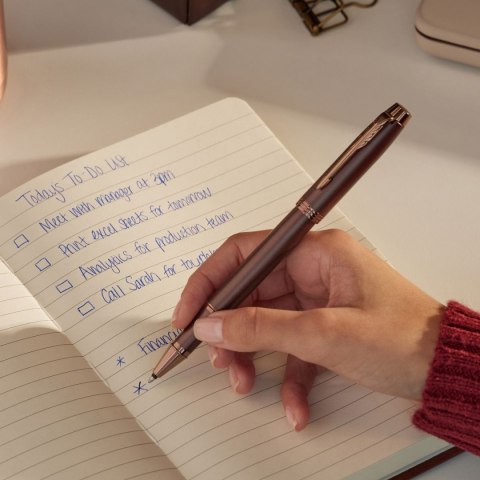 Today's To Do List
☐ Meet with manager at 3pm
☐ Print excel sheets for tomorrow
☐ Analytics for production team
☐ Call Sarah for
*
*